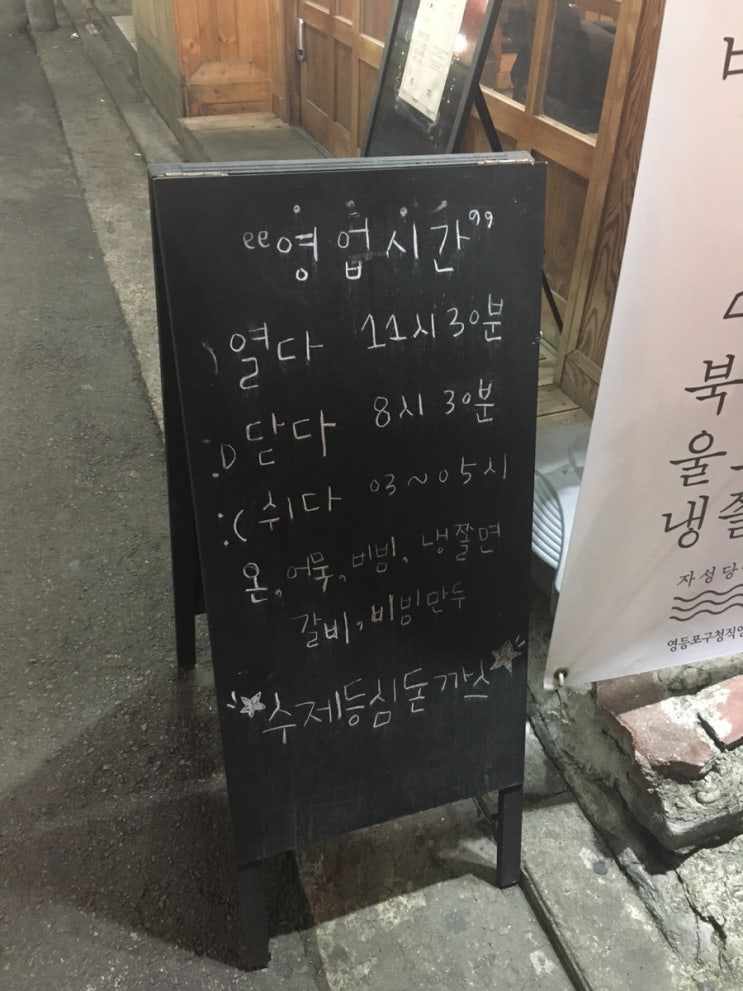 “영업시간”
:) 열다 11시 30분
:D 닫다 8시 30분
:( 쉬다 03~05시
온, 어묵, 비빔, 냉쫄면
갈비, 비빔만두
수제등심돈까스
북
울
냉쫄
자성당
영등포구청직영